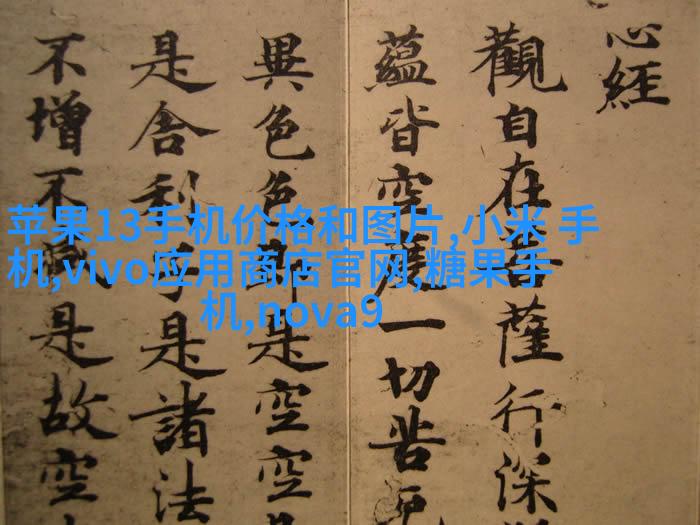 心經
觀自在菩薩行深
蘊皆空度一切苦厄
異色色即是空空
是舍利子是諸法
不增不減是故空
苹果13手机价格和图片,小米 手
机,vivo应用商店官网,糖果手
机,nova9